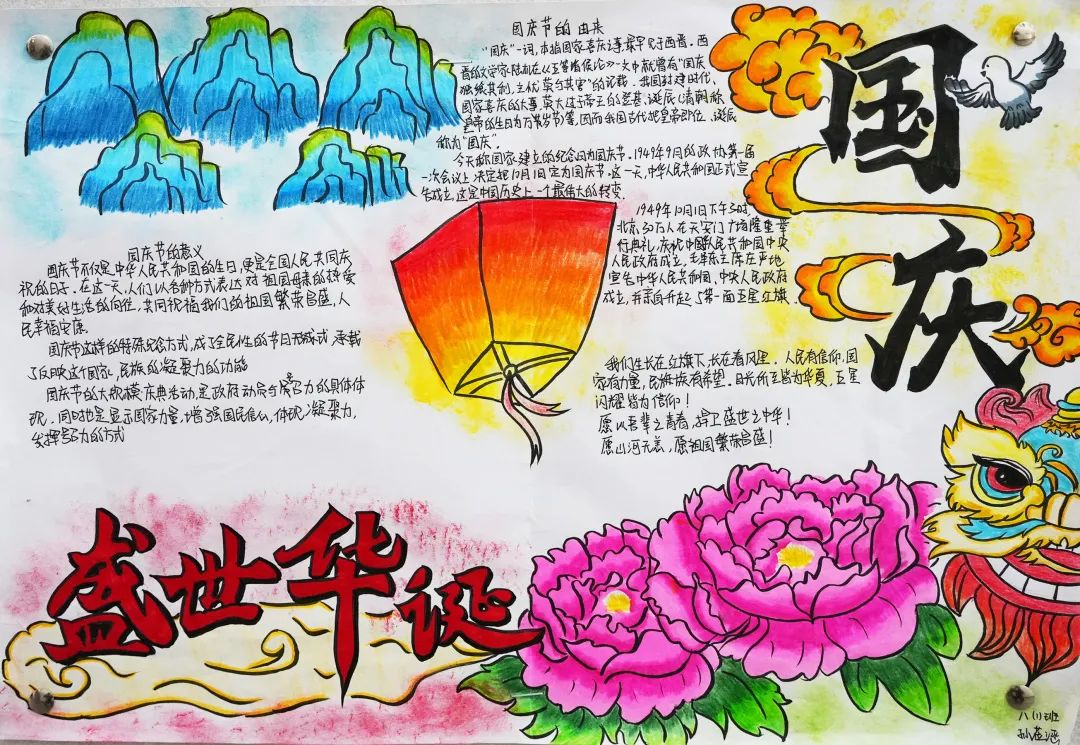 国庆节的由来
"国庆"一词,本指国家喜庆之事,最早见于西晋。西
晋的文学家陆机在《五等诸侯论》一文中就曾有"国庆
独飨其利,主忧莫与其害"的记载。我国封建时代、
国家喜庆的大事,莫大过于帝王的登基、诞辰(清朝称
皇帝的生日为万岁节)等,因而我国古代把皇帝即位、诞辰
称为"国庆"。
今天称国家建立的纪念日为国庆节。1949年9月的政协第一届
一次会议上决定把10月1日定为国庆节。这一天,中华人民共和国正式宣
告成立,这是中国历史上一个最伟大的转变。
1949年10月1日下午3时,
北京30万人在天安门广场隆重举
行典礼,庆祝中国人民共和国中央
人民政府成立。毛泽东主席在
宣告中华人民共和国、中央人民政府
成立,并亲自升起了第一面五星红旗。
国庆节的意义
国庆节不仅是中华人民共和国的生日,更是全国人民共同庆
祝的日子。在这一天,人们以各种方式表达对祖国母亲的热爱
和对美好生活的向往,共同祝福我们的祖国繁荣昌盛,人
民幸福安康。
国庆节这样的特殊纪念方式,成了全民性的节日形式,承载
了反映这个国家、民族的凝聚力的功能
国庆节的大规模庆典活动,是政府动员与号召力的具体体
现,同时也是显示国家力量,增强国民信心,体现凝聚力,
发挥号召力的方式
我们生长在红旗下,长在春风里。人民有信仰,国
家有力量,民族有希望。目光所至皆为华夏,五星
闪耀皆为信仰!
愿以吾辈之青春,捍卫盛世之中华!
愿山河无恙,愿祖国繁荣昌盛!
国庆
盛世华诞
八(1)班